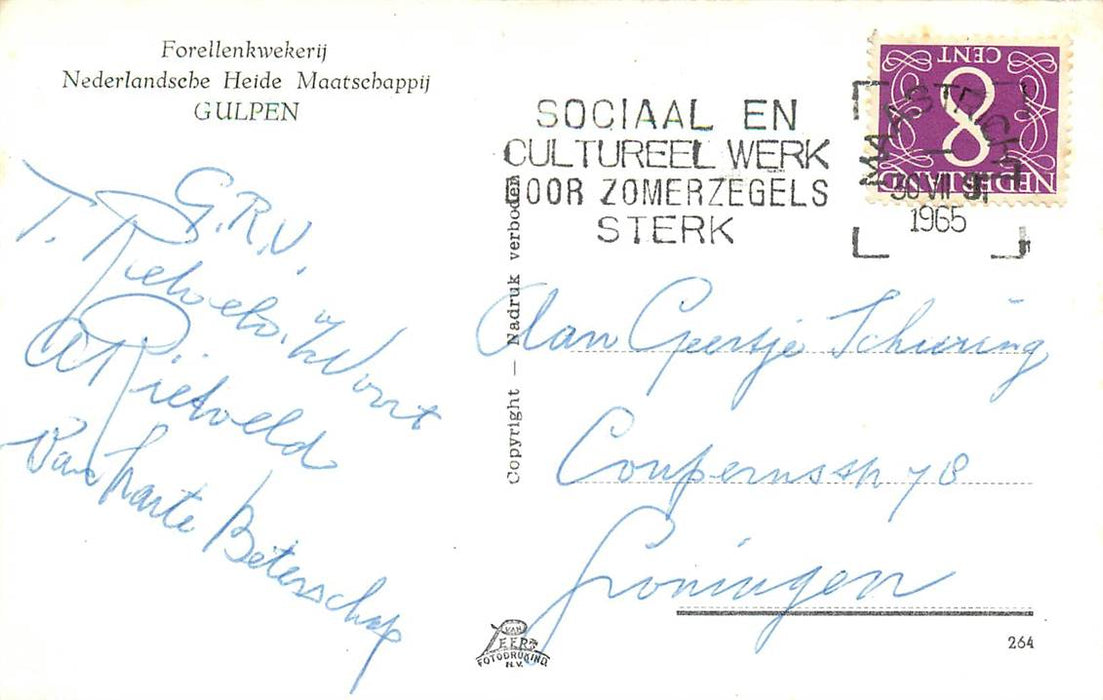 Forellenkwekerij
Nederlandsche Heide Maatschappij
GULPEN
G.R.V.
T. Rietveld. v/Voort
A Rietveld
Van harte Beterschap
SOCIAAL EN
CULTUREEL WERK
DOOR ZOMERZEGELS
STERK
MAASTRICHT
30 VII
1965
8 CENT
NEDERLAND
Copyright — Nadruk verboden
Aan Geertje Schuring
Couperusstr 78
Groningen
VAN
LEERS
FOTODRUKIND
N.V.
264